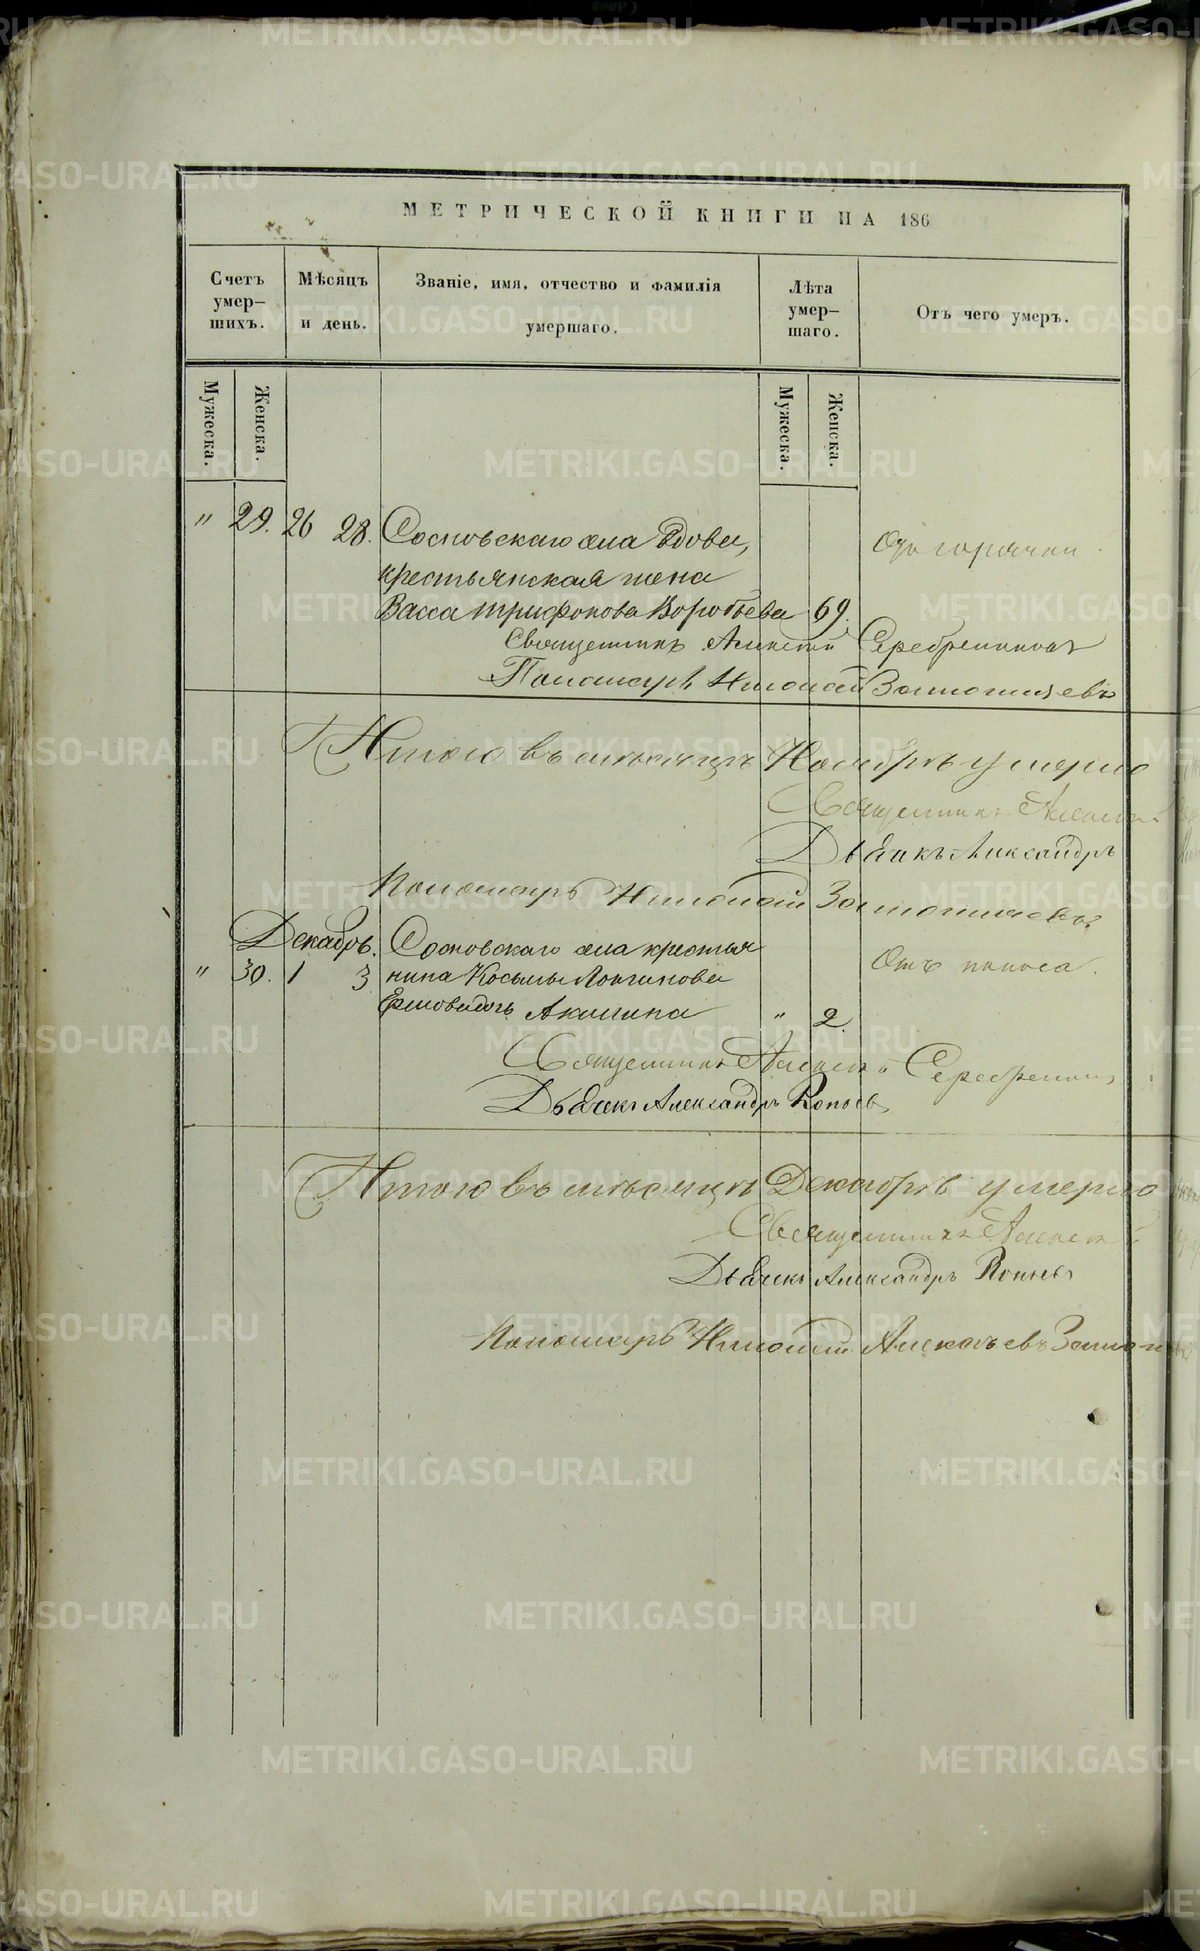 МЕТРИЧЕСКОЙ КНИГИ НА 186
Счетъ умер-шихъ.
Мѣсяцъ и день.
Званіе, имя, отчество и фамилія умершаго.
Лѣта умер-шаго.
Отъ чего умеръ.
Мужеска.
Женска.
Мужеска.
Женска.
" 29. 26 28. Сосновскаго села вдова, Отъ горячки.
крестьянская жена
Васса Трифонова Воробьева 69.
Священникъ Алексій Серебренниковъ
Пономарь Николай Золотицевъ
Итого въ мѣсяцѣ Ноябрѣ умерло
Священникъ Алексій
Дьячекъ Александръ
Пономарь Николай
Декабрь. Сосновскаго села крестья
" 30. 1 3 нина Косьмы Лонгинова Отъ поноса.
дочь Акилина " 2.
Священникъ Алексій Серебренник
Дьячекъ Александръ Поповъ
Итого въ мѣсяцѣ Декабрѣ умерло
Священникъ Алексій
Дьячекъ Александръ Поповъ
Пономарь Николай Алексѣевъ
METRIKI.GASO-URAL.RU